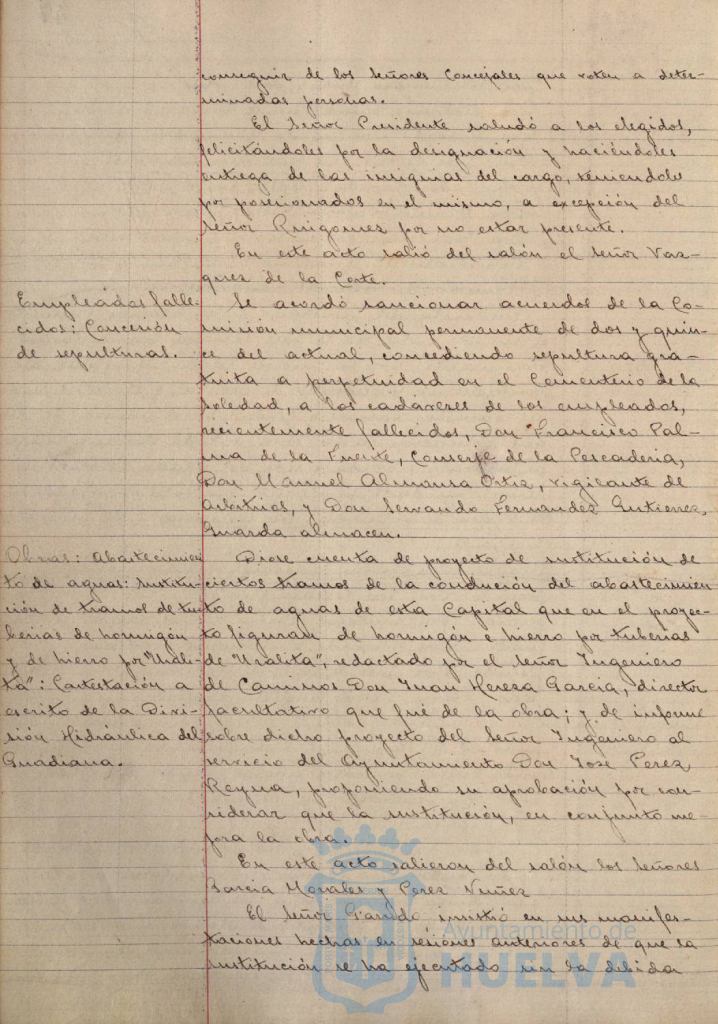 conseguir de los señores Concejales que voten a deter-
minadas personas.
El Señor Presidente saludó a los elegidos,
felicitándoles por la designación y haciéndoles
entrega de las insignias del cargo, teniendole
por posesionados en el mismo, a excepción del
señor Ruigomez por no estar presente.
En este acto salió del salón el señor Vaz-
quez de la Corte.
Empleados falle-
cidos: Concesión
de sepulturas.
Se acordó sancionar acuerdos de la Co-
misión municipal permanente de dos y quin-
ce del actual, concediendo sepultura gra-
tuita a perpetuidad en el Cementerio de la
Soledad, a los cadáveres de los empleados,
recientemente fallecidos, Don Francisco Pal-
ma de la Fuente, Conserje de la Pescaderia,
Don Manuel Almansa Ortiz, vigilante de
Arbitrios, y Don Servando Fernandez Gutierrez,
Guarda almacen.
Obras: Abastecimien
to de aguas: Sustitu-
ción de tramos de tu-
berias de hormigón
y de hierro por "Urali-
ta": Contestación a
escrito de la Divi-
sión Hidráulica del
Guadiana.
Diose cuenta de proyecto de sustitución de
ciertos tramos de la condución del abastecimien-
to de aguas de esta Capital que en el proyec-
to figuran de hormigón e hierro por tuberias
de "Uralita", redactado por el Señor Ingeniero
de Caminos Don Juan Hereza Garcia, director
facultativo que fué de la obra; y de informe
sobre dicho proyecto del Señor Ingeniero al
servicio del Ayuntamiento Don José Perez
Reyna, proponiendo su aprobación por con-
siderar que la sustitución, en conjunto me-
jora la obra.
En este acto salieron del salón los Señores
Garcia Morales y Perez Nuñez
El Señor Garrido insistió en sus manifes-
taciones hechas en sesiones anteriores de que la
sustitución se ha ejecutado sin la debida
Ayuntamiento de
HUELVA